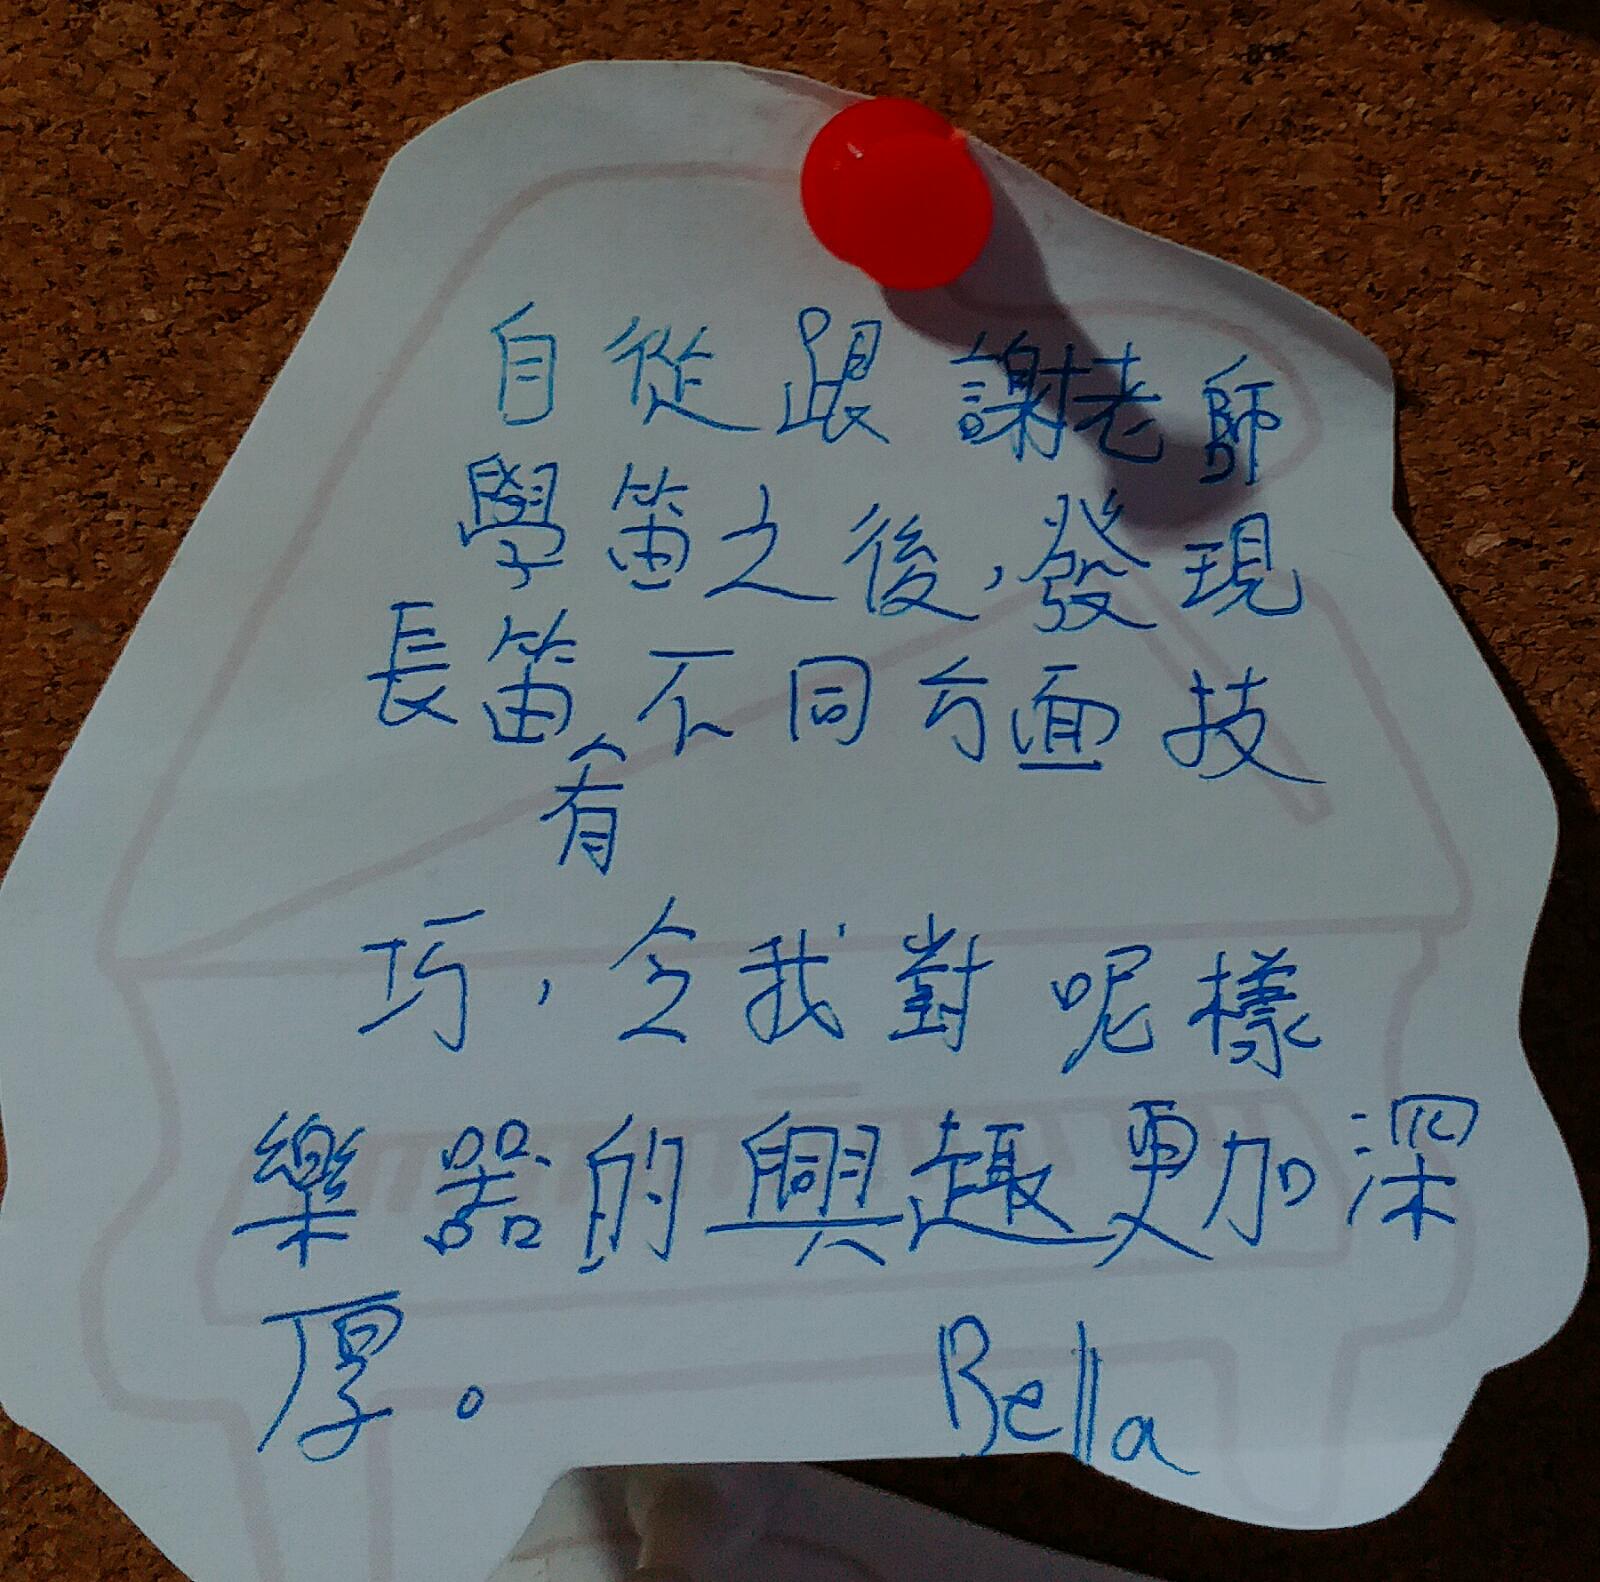 自從跟謝老師
學笛之後，發現
長笛有不同方面技
巧，令我對呢樣
樂器的興趣更加深
厚。
Bella